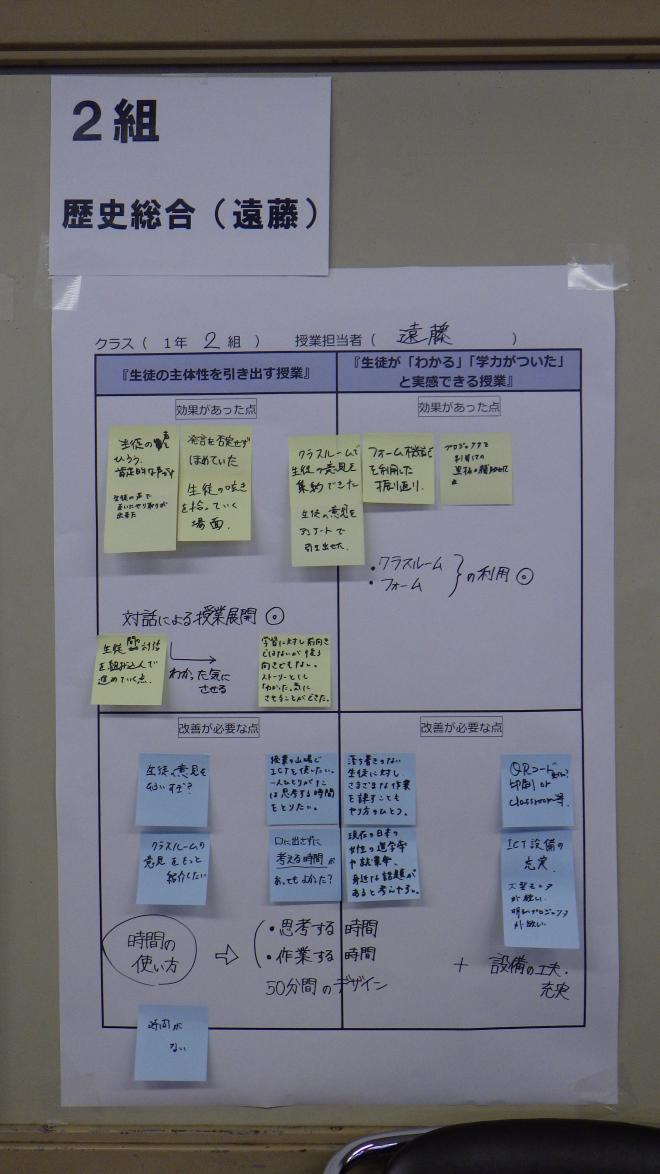 2組
歴史総合（遠藤）
クラス（ 1年 2 組 ） 授業担当者（ 遠藤 ）
『生徒の主体性を引き出す授業』
『生徒が「わかる」「学力がついた」
と実感できる授業』
効果があった点
効果があった点
生徒の声を
ひろう。
肯定的な
生徒の声で
出来た
発言を否定せず
ほめていた
生徒の呟き
を拾っていく
場面.
クラスルームで
生徒の意見を
集約できた
生徒の意見を
アンケートで
引き出せた.
フォーム機能
を利用した
振り返り.
プロジェクタを
利用しての
・クラスルーム
・フォーム
の利用 ◎
対話による授業展開 ◎
生徒
を組み込んで
進めていく点.
わかった気に
させる
学習に対し前向き
ではないが後ろ
向きでもない。
ストーリーとして
「わかった」気に
させることができた。
改善が必要な点
改善が必要な点
生徒の意見を
授業の山場で
ICTを使いたい。
一人ひとりが
は思考する時間
をとりたい。
落ち着きのない
生徒に対し
さまざまな作業
を課すことも
やり方のひとつ。
QRコード
印刷 or
classroom等.
クラスルームの
意見をもっと
紹介したい
口に出さずに
考える時間が
あってもよかった？
現在の日本の
女性の進学率
や就業率、
身近な話題が
あると考えやすい。
ICT設備の
充実.
大型モニタ
が欲しい
明るいプロジェクタ
が欲しい
時間の
使い方
⇨
・思考する時間
・作業する時間
50分間のデザイン
＋ 設備の工夫・
充実
時間が
ない